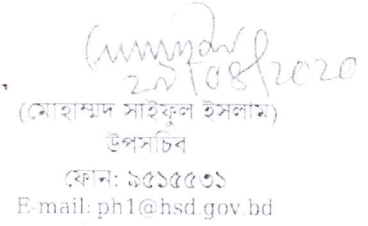 ২০/০৪/২০২০
(মোহাম্মদ সাইফুল ইসলাম)
উপসচিব
ফোন: ৯৫১৫৫৩১
E-mail: ph1@hsd.gov.bd